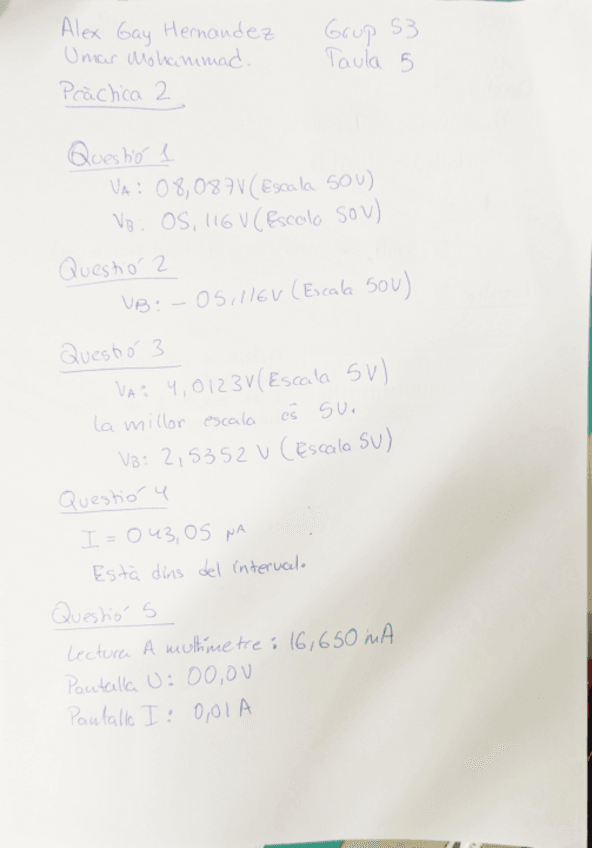 Alex Gay Hernandez Grup S3
Umar Mohammad. Taula 5
Pràctica 2
Questió 1
VA: 08,087V (Escala 50V)
VB: 05,116V (Escala 50V)
Questió 2
VB: - 05,116V (Escala 50V)
Questió 3
VA: 4,0123V (Escala 5V)
La millor escala és 5V.
VB: 2,5352 V (Escala 5V)
Questió 4
I = 043,05 µA
Està dins del interval.
Questió 5
Lectura A multímetre: 16,650 mA
Pantalla U: 00,0V
Pantalla I: 0,01 A